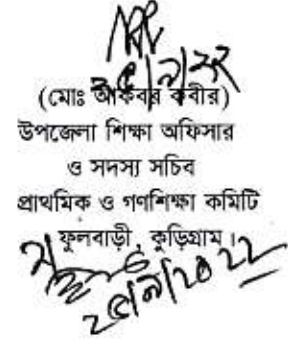 ২৫/৯/২২
(মোঃ আকবর কবীর)
উপজেলা শিক্ষা অফিসার
ও সদস্য সচিব
প্রাথমিক ও গণশিক্ষা কমিটি
ফুলবাড়ী, কুড়িগ্রাম।
২৫/৯/২০২২